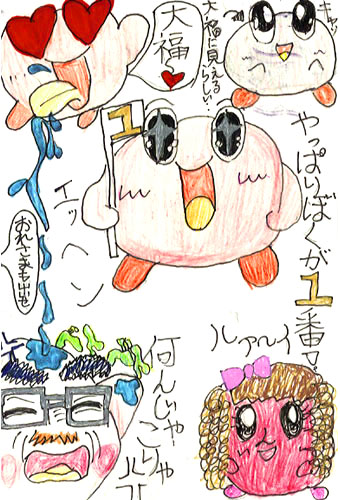 キャッ
大福に見える
らしい…
大福
1
やっぱりぼくが1番!
エッヘン
おれさまも出せ
ルアルイ
何んじゃ
こりゃ